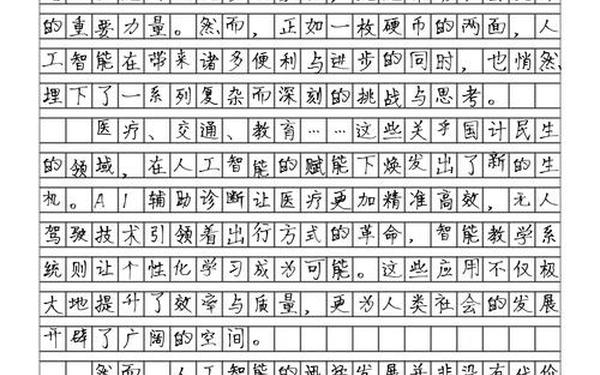 的重要力量。然而，正如一枚硬币的两面，人
工智能在带来诸多便利与进步的同时，也悄然
埋下了一系列复杂而深刻的挑战与思考。
医疗、交通、教育……这些关乎国计民生
的领域，在人工智能的赋能下焕发出了新的生
机。AI辅助诊断让医疗更加精准高效，无人
驾驶技术引领着出行方式的革命，智能教学系
统则让个性化学习成为可能。这些应用不仅极
大地提升了效率与质量，更为人类社会的发展
开辟了广阔的空间。
然而，人工智能的迅速发展并非没有代价